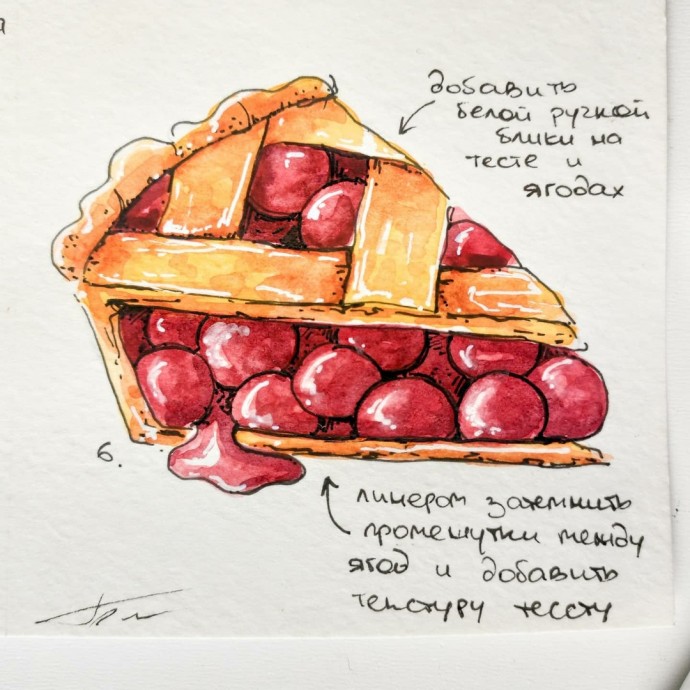 я
добавить
белой ручкой
блики на
тесте и
ягодах
6.
линером затемнить
промежутки между
ягод и добавить
текстуру тесту